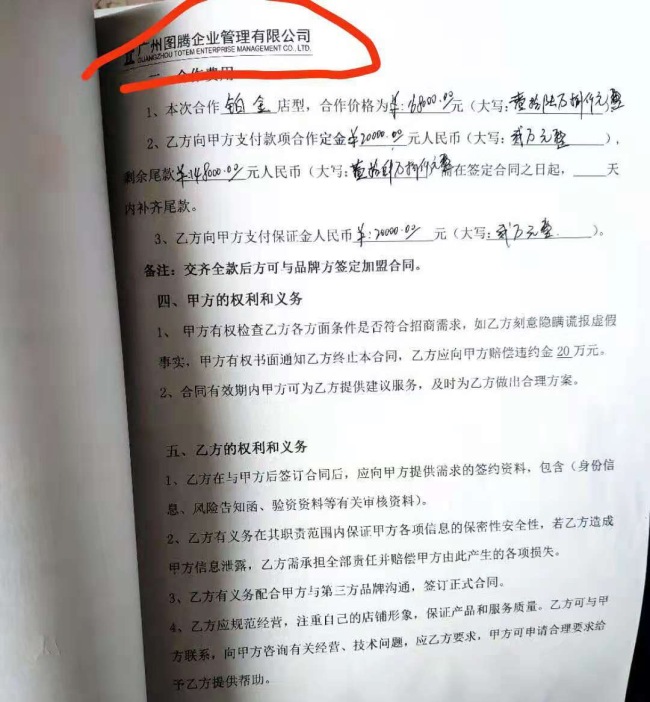 广州图腾企业管理有限公司
GUANGZHOU TOTEM ENTERPRISE MANAGEMENT CO., LTD.
合作费用
1、本次合作 铂金 店型，合作价格为¥:168000.00元（大写:壹拾陆万捌仟元整
2、乙方向甲方支付款项合作定金¥20000.00元人民币（大写:贰万元整），
剩余尾款¥148000.00元人民币（大写:壹拾肆万捌仟元整 在签定合同之日起，____天
内补齐尾款。
3、乙方向甲方支付保证金人民币¥:20000.00元（大写:贰万元整）。
备注：交齐全款后方可与品牌方签定加盟合同。
四、甲方的权利和义务
1、 甲方有权检查乙方各方面条件是否符合招商需求，如乙方刻意隐瞒谎报虚假
事实，甲方有权书面通知乙方终止本合同，乙方应向甲方赔偿违约金 20 万元。
2、合同有效期内甲方可为乙方提供建议服务，及时为乙方做出合理方案。
五、乙方的权利和义务
1、乙方在与甲方后签订合同后，应向甲方提供需求的签约资料、包含（身份信
息、风险告知函、验资资料等有关审核资料）。
2、乙方有义务在其职责范围内保证甲方各项信息的保密性安全性，若乙方造成
甲方信息泄露，乙方需承担全部责任并赔偿甲方由此产生的各项损失。
3、乙方有义务配合甲方与第三方品牌沟通，签订正式合同。
4、乙方应规范经营，注重自己的店铺形象，保证产品和服务质量。乙方可与甲
方联系，向甲方咨询有关经营、技术问题，应乙方要求，甲方可申请合理要求给
予乙方提供帮助。